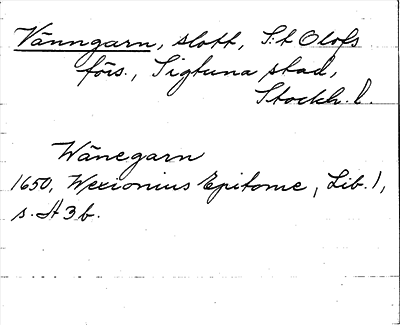 Vänngarn, slott, S:t Olofs
förs., Sigtuna stad,
Stockh. l.
Wänegarn
1650, Wexionius Epitome, Lib. 1,
s. H 3 b.